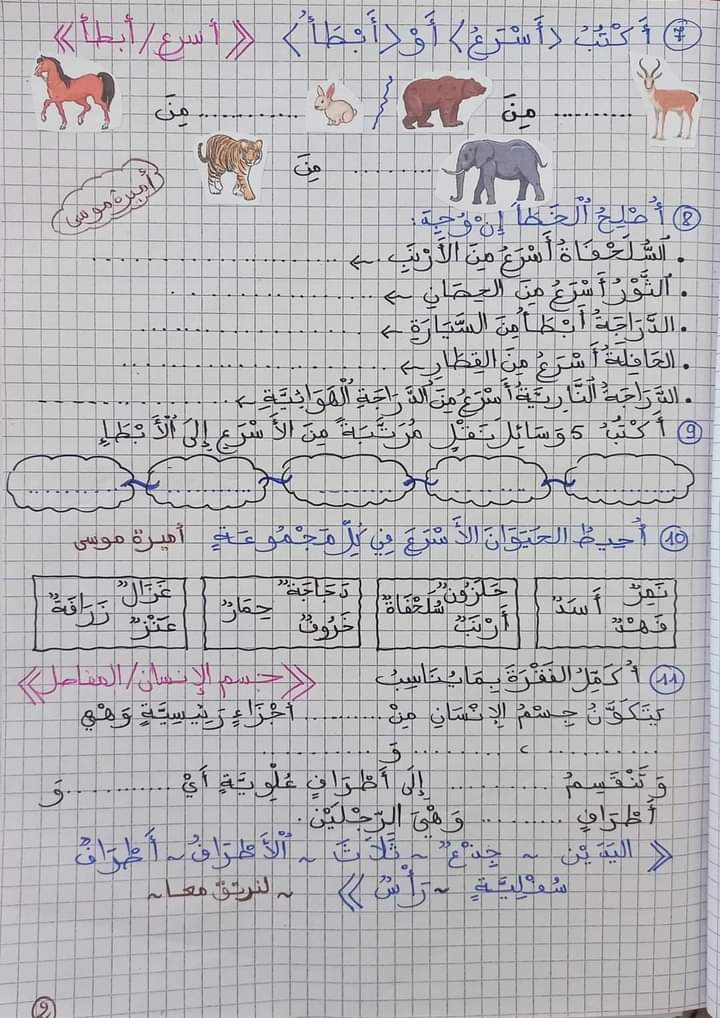 7 أَكْتُبُ <أَسْرَعُ> أَوْ <أَبْطَأُ> «أسرع/أبطأ»
.......... مِنَ ............. مِنَ
.......... مِنَ
أميرة موسى
8 أُصْلِحُ الْخَطَأَ إِنْ وُجِدَ:
. السُّلَحْفَاةُ أَسْرَعُ مِنَ الأَرْنَبِ ← ..........................
. الثَّوْرُ أَسْرَعُ مِنَ الحِصَانِ ← ..........................
. الدَّرَاجَةُ أَبْطَأُ مِنَ السَّيَارَةِ ← ..........................
. الحَافِلَةُ أَسْرَعُ مِنَ القِطَارِ ← ..........................
. الدَّرَاجَةُ النَّارِيَّةُ أَسْرَعُ مِنَ الدَّرَاجَةِ الْهَوَائِيَّةِ ← ....................
9 أَكْتُبُ 5 وَسَائِلِ نَقْلٍ مُرَتَّبَةً مِنَ الأَسْرَعِ إِلَى الْأَبْطَإِ
............ ............ ............ ............ ............
10 أُحِيطُ الحَيَوَانَ الأَسْرَعَ فِي كُلِّ مَجْمُوعَةٍ أميرة موسى
نَمِرٌ أَسَدٌ فَهْدٌ
حَلَزُونٌ سُلَحْفَاةٌ أَرْنَبٌ
دَجَاجَةٌ حِمَارٌ خَرُوفٌ
غَزَالٌ زَرَافَةٌ عَنْزٌ
11 أُكَمِّلُ الفَقْرَةَ بِمَا يُنَاسِبُ «جسم الإنسان/المفاصل»
يَتَكَوَّنُ جِسْمُ الإِنْسَانِ مِنْ .......... أَجْزَاءٍ رَئِيسِيَّةٍ وَهْيَ
............ ، ............ وَ ............
وَتَنْقَسِمُ ............ إِلَى أَطْرَافٍ عُلْوِيَّةٍ أَيْ ............ وَ
أَطْرَافٍ .......... وَهْيَ الرِّجْلَيْنِ.
« اليَدَيْنِ ~ جِذْعٌ ~ ثَلَاثَ ~ الْأَطْرَافُ ~ أَطْرَافٌ
سُفْلِيَّةٍ ~ رَأْسٌ » ~ لنرتق معا ~
9